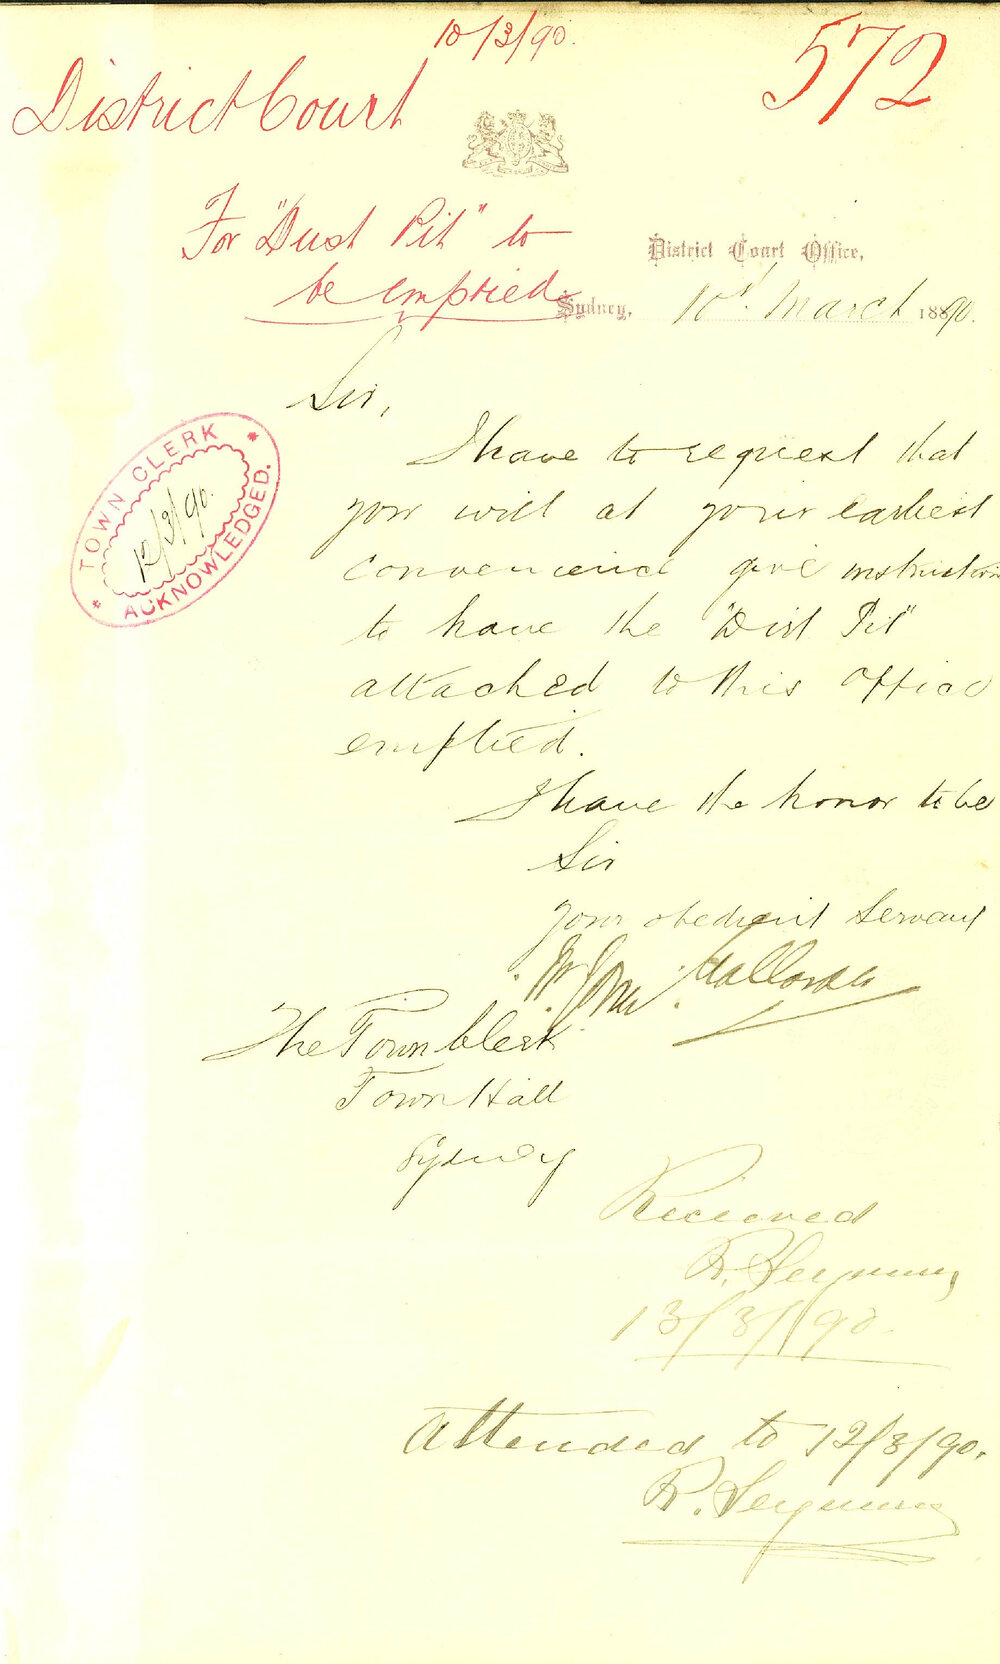 10/3/90.
572
District Court
For "Dust Pit" to
be emptied
District Court Office,
Sydney, 10th March 1890.
Sir,
I have to request that
you will at your earliest
convenience give instructions
to have the "Dust Pit"
attached to this Office
emptied.
I have the honor to be
Sir
your obedient Servant
TOWN CLERK
12/3/90.
ACKNOWLEDGED.
The Town Clerk
Town Hall
Sydney
Recieved
R. Seymour
13/3/90.
Attended to 12/3/90.
R. Seymour